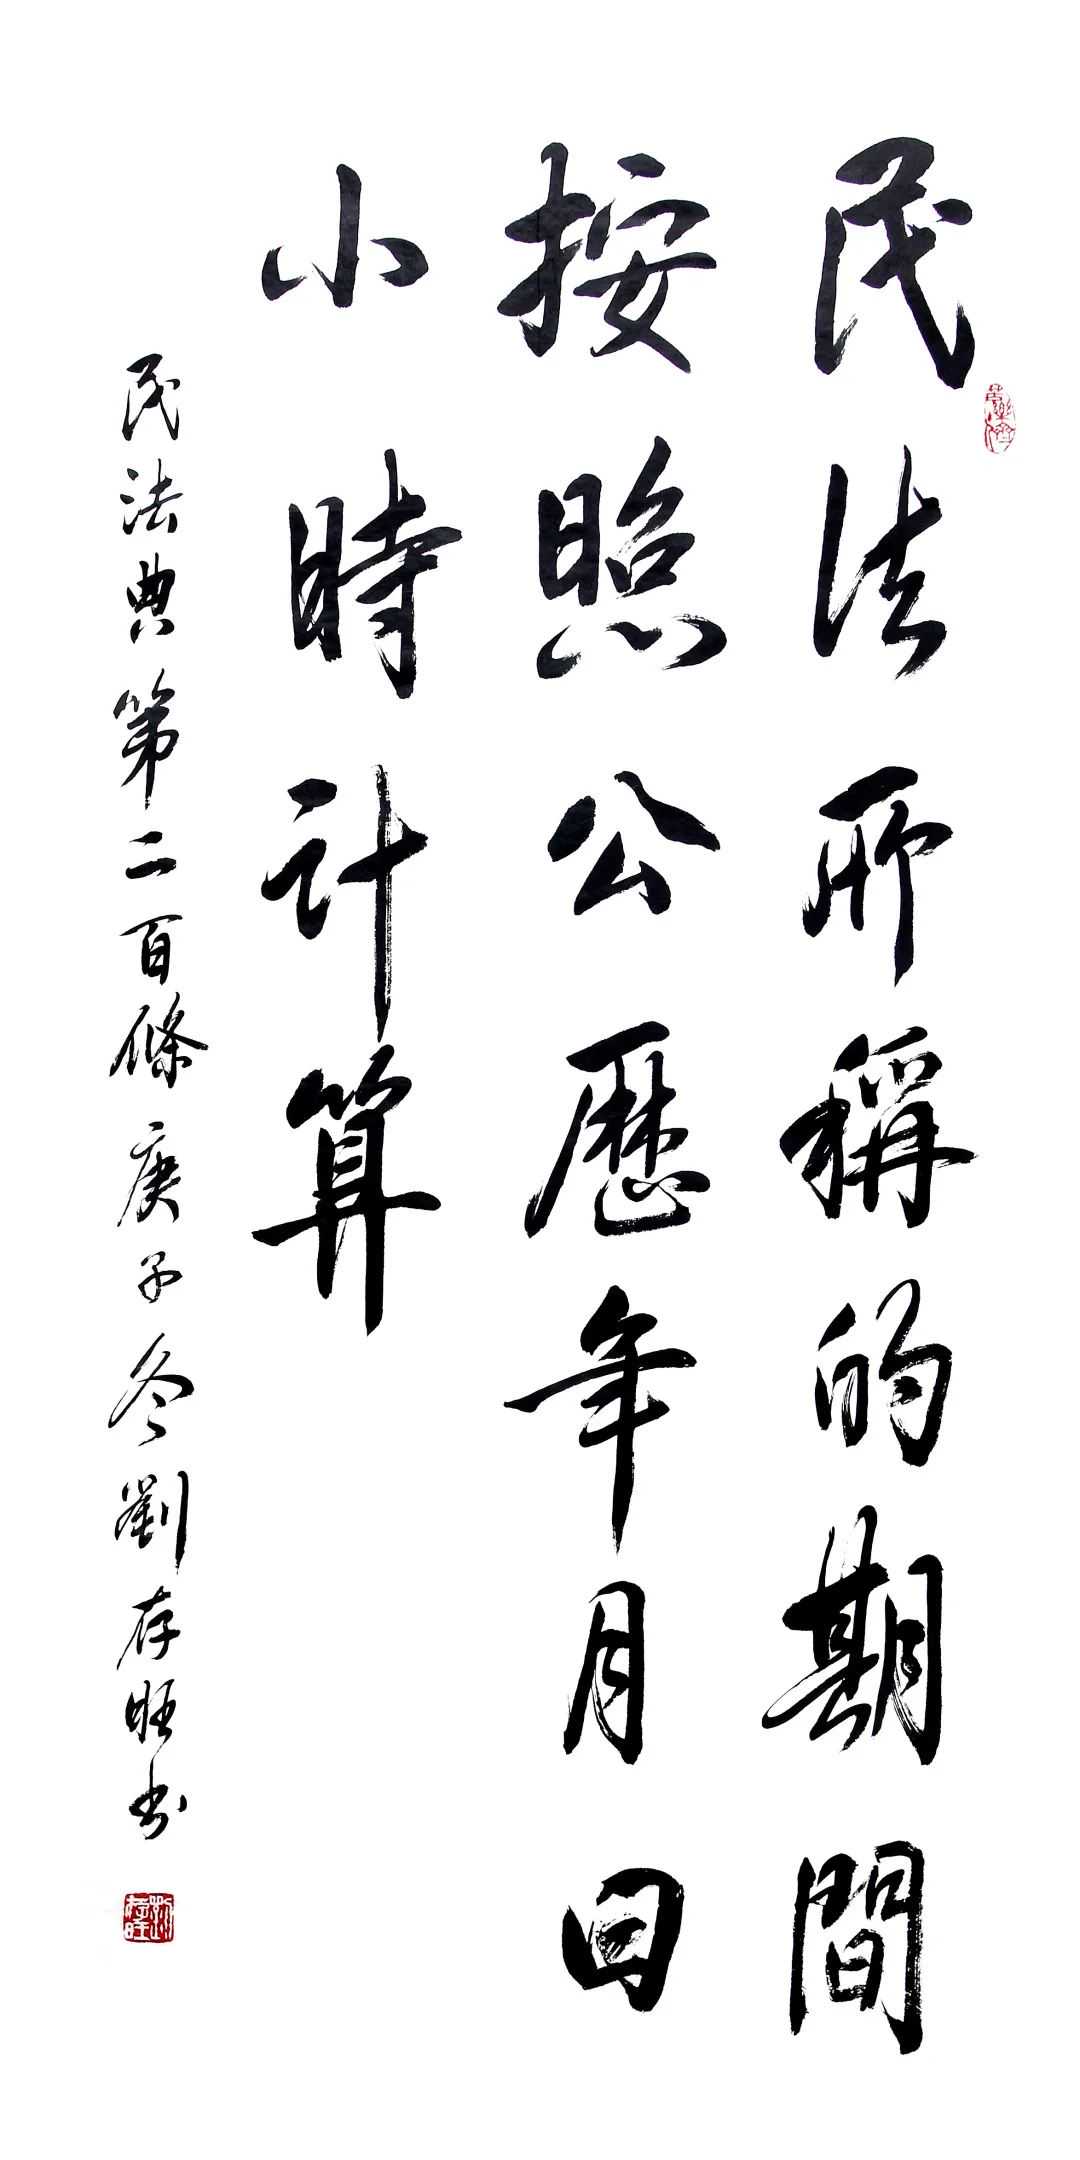 民法所稱的期間
按照公曆年月日
小時計算
民法典第二百條庚子冬劉存旺書